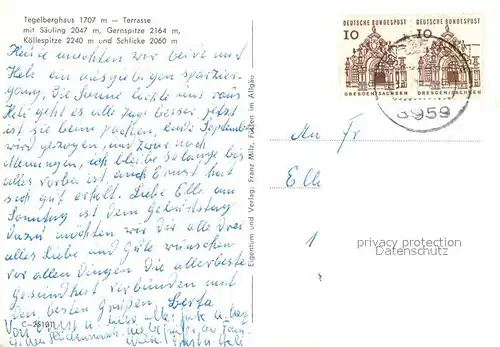 Tegelberghaus 1707 m — Terrasse
mit Säuling 2047 m, Gernspitze 2164 m,
Köllespitze 2240 m und Schlicke 2060 m
Heute machten wir beide mit
Heli ein ausgiebigen spazier-
gang, Die Sonne lachte uns raus
Heli geht es alle Tage besser, jetzt
ist sie beim packen, ende September
wird gezogen, und zwar nach
Memmingen, ich bleibe solange bis
alles vorbei ist, auch Ernst hat
sich gut erholt. Liebe Elle am
Sonntag ist dein Geburtstag
Dazu möchten wir Dir alle drei
alles Liebe und Gute wünschen
vor allen Dingen Die allerbeste
Gesundheit verbunden mit
den besten Grüßen, Berta
Von Ernst u. Heli alles gute u.
C-251911
Eigentum und Verlag: Franz Milz, Füssen im Allgäu
DEUTSCHE BUNDESPOST DEUTSCHE BUNDESPOST
10 10
DRESDEN/SACHSEN DRESDEN/SACHSEN
8959
An Fr
Elle
1
privacy protection
Datenschutz